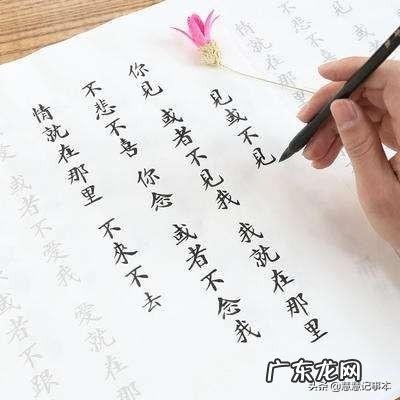 見或不見
你見 或者不見我 我就在那里
不悲不喜 你念 或者不念我
情就在那里 不來不去
或者不爱我 爱就在那
或者不跟
广东龙网
头条@慧慧记事本